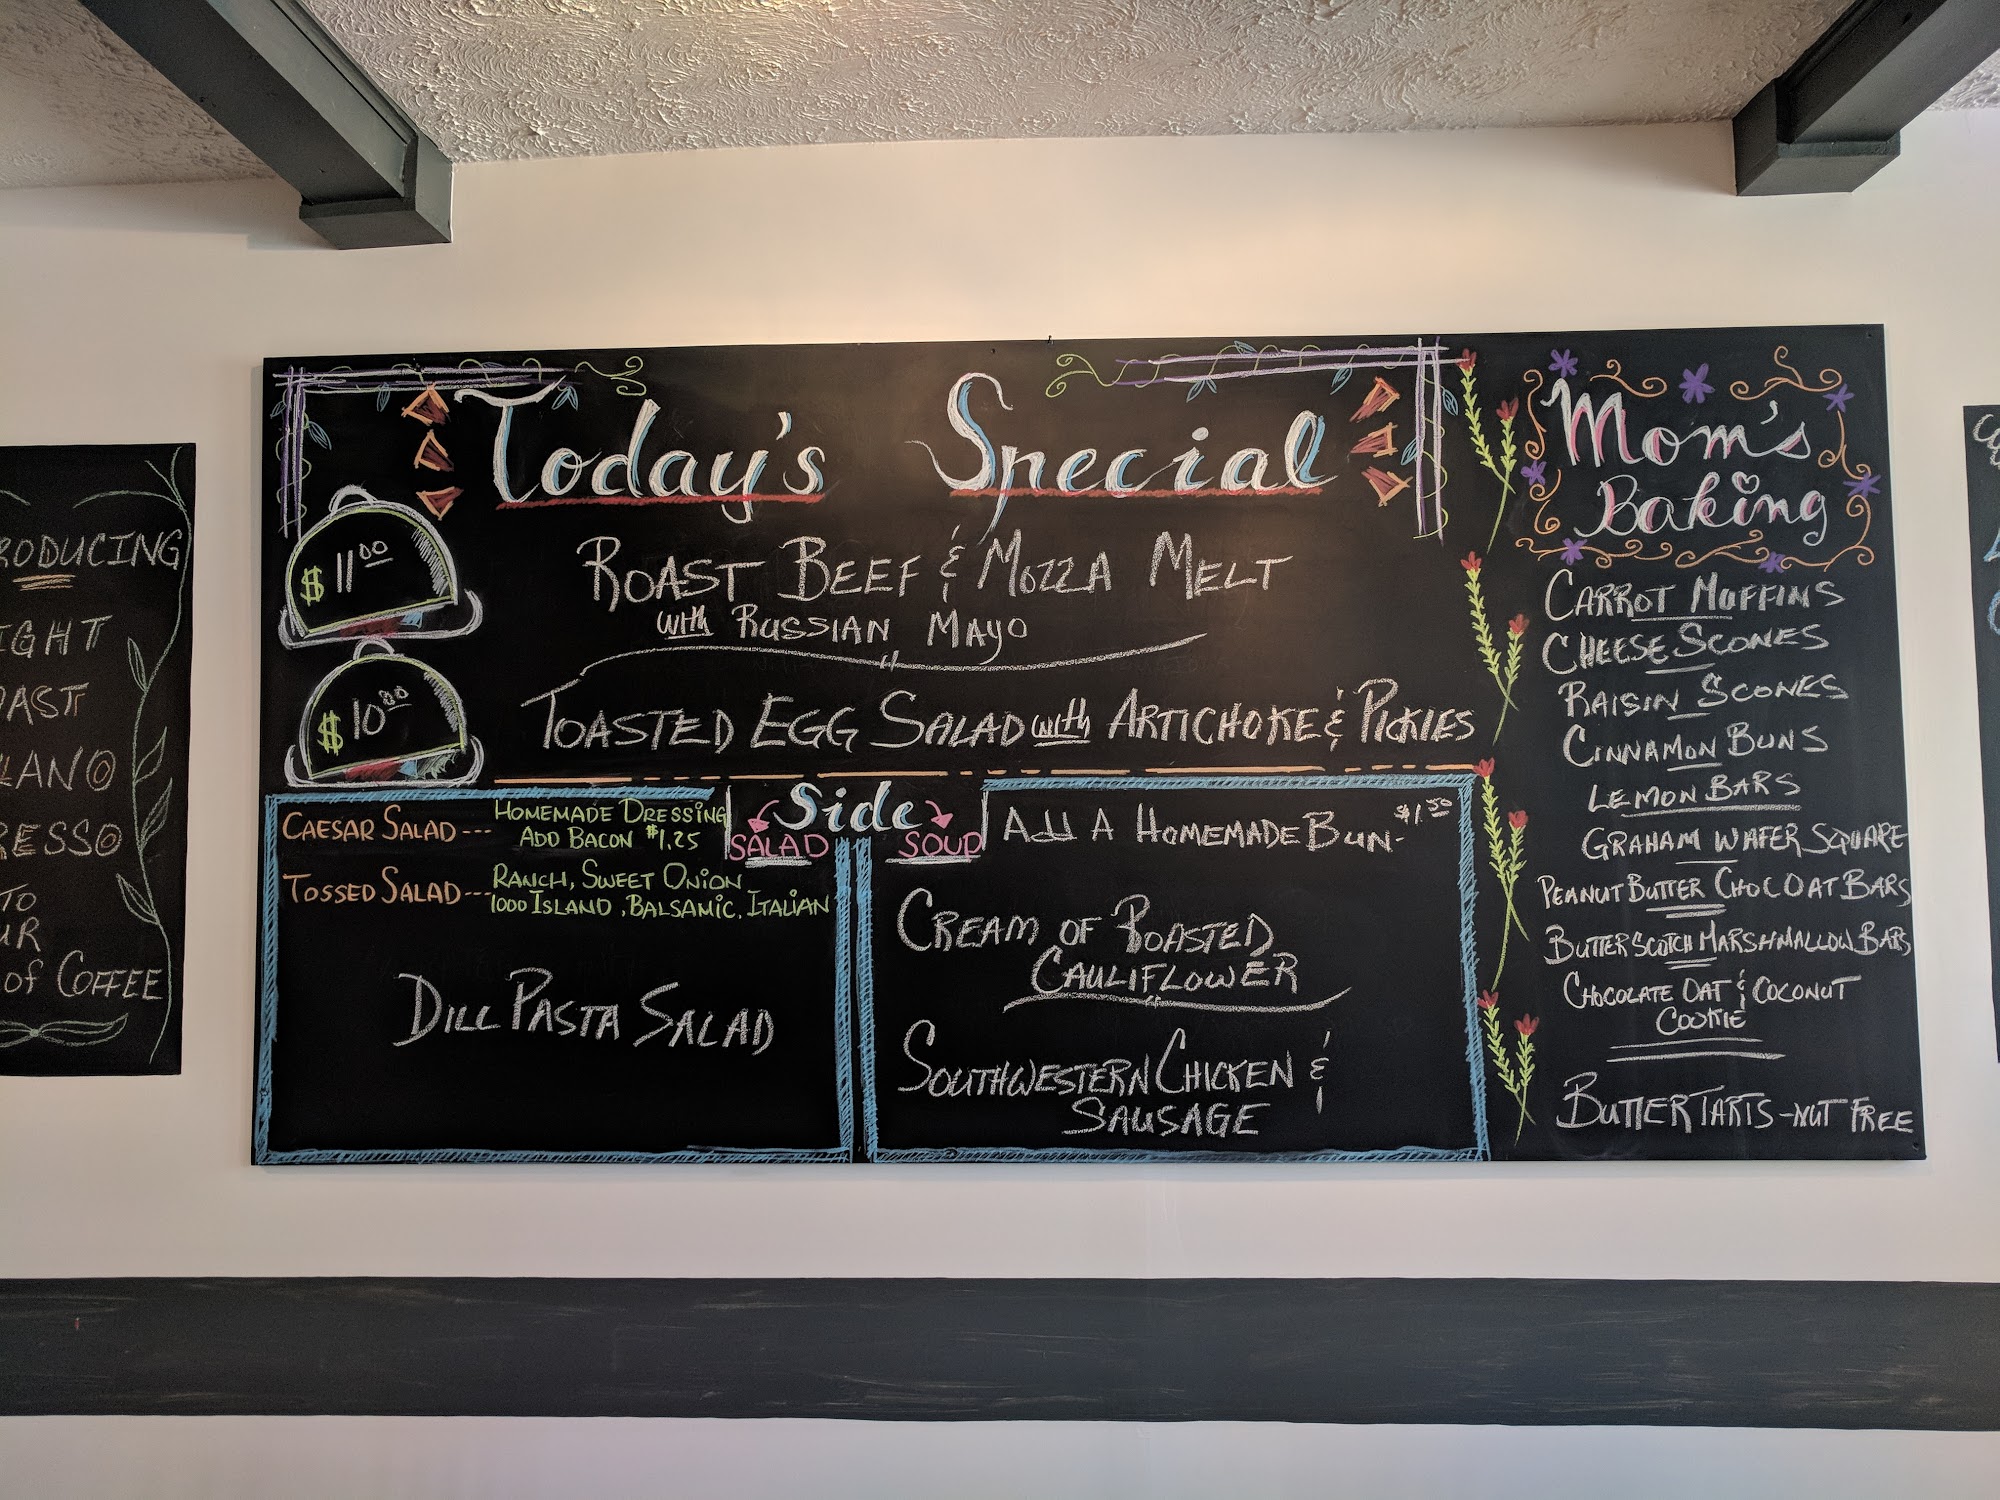 Today's Special
$11.00
ROAST BEEF & MOZZA MELT
with RUSSIAN MAYO
$10.00
TOASTED EGG SALAD with ARTICHOKE & PICKLES
Side
SALAD SOUP
CAESAR SALAD --- HOMEMADE DRESSING
ADD BACON $1.25
TOSSED SALAD --- RANCH, SWEET ONION
1000 ISLAND, BALSAMIC, ITALIAN
DILL PASTA SALAD
ADD A HOMEMADE BUN - $1.50
CREAM OF ROASTED
CAULIFLOWER
SOUTHWESTERN CHICKEN &
SAUSAGE
Mom's
Baking
CARROT MUFFINS
CHEESE SCONES
RAISIN SCONES
CINNAMON BUNS
LEMON BARS
GRAHAM WAFER SQUARE
PEANUT BUTTER CHOC OAT BARS
BUTTERSCOTCH MARSHMALLOW BARS
CHOCOLATE OAT & COCONUT
COOKIE
BUTTERTARTS - NUT FREE
RODUCING
IGHT
AST
LANO
RESSO
TO
UR
of COFFEE